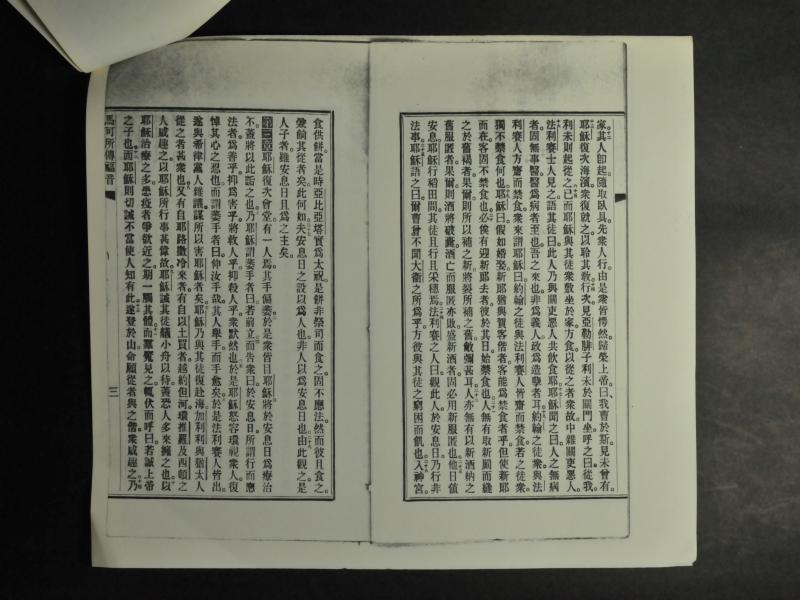 家其人卽起隨取臥具先衆人行由是衆皆愕然歸榮上帝曰我曹於斯見未曾有
耶穌復次海濱衆復就之以聆其敎行次見亞勒腓子利未於關門坐呼之曰從我
利未則起從之已而耶穌與其徒衆敷坐於家方食以從之者衆故中雜關吏惡人
法利賽士人見之語其徒曰此人乃與關吏惡人共飮食耶耶穌聞之曰人之無病
者固無事醫醫爲病者至也吾之來也非爲義人政爲造孽者耳約翰之徒與法
利賽人方齋而禁食衆來謂耶穌曰約翰之徒與法利賽人皆齋而禁食若之徒
獨不禁食何也耶穌曰假如婚娶新耶猶與賀客偕者客能爲禁食者乎但使新耶
而在客固不禁食也必俟有迎新耶去者彼於其日始禁食也人無有取新罽而縫
之於舊褐者果爾則所以補之新將裂所補之舊敝彌甚耳人亦無有以新酒納之
舊服匿者果爾則酒將破橐酒亡而服匿亦敗盛新酒者固必用新服匿也他日値
安息耶穌行稻田間其徒且行且采穗焉法利賽之人曰觀此人於安息日乃行非
法事耶穌語之曰爾曹曾不聞大衞之所爲乎方彼與其徒之窮困而飢也入神宮
食供餠當是時亞比亞塔實爲太祝是餠非祭司而食之固不應法然而彼且食之
幷餉其從者矣此何如夫安息日之設以爲人也非人以爲安息日也由此觀之是
人子者雖安息日且爲之主矣
耶穌復次會堂有一人焉其手偏萎於是衆皆目耶穌將於安息日爲療治
不蓋將以此詬之也乃耶穌謂萎手者曰若前立而告衆曰於安息日所謂行而應
法者爲善乎抑爲害乎將救人乎抑殺人乎衆默然也於是耶穌怒容環視衆人復
悼其心之忍也而謂萎手者曰伸汝手哉其人舉手而手愈矣於是法利賽人皆出
遂與希律黨人雜議謀所以害耶穌者矣耶穌乃與其徒復赴海加利利與猶太人
從之者甚衆也又有自耶路撒冷來者有自以土買者越約但河環推羅及西頓之
人咸趣之以耶穌所行事甚偉故耶穌誡其徒艤小舟以待蓋恐人多來擁之也以
耶穌治療之多患疫者爭欲近之期一觸其體而羣魔見之輒伏而呼曰若誠上帝
之子也而耶穌則切誡不當使人知有此遂登於山命願從者與之偕衆咸趣之乃
馬可所傳福音
三